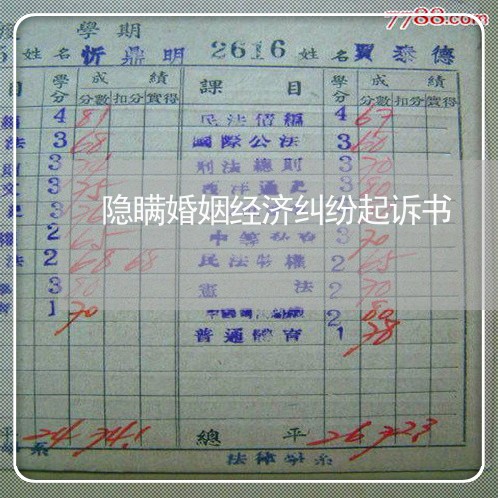 7788.com
學期
姓名 忻鼎明 2616 姓名 賈泰德
目 學分 成績 課目 學分 成績
分數 扣分 實得 分數 扣分 實得
4 81 民法債編 4 67
法 3 68 國際公法 3 60
3 刑法總則 3 70
3 75 西洋通史 3 80
隐瞒婚姻经济纠纷起诉书
2 65 3 70
法 2 68 68 民法物權 2 65
3 80 憲法 2 70
1 70 2 80
普通體育 1 78
平 24 74.1 總平 26 72.3
系 法律學系